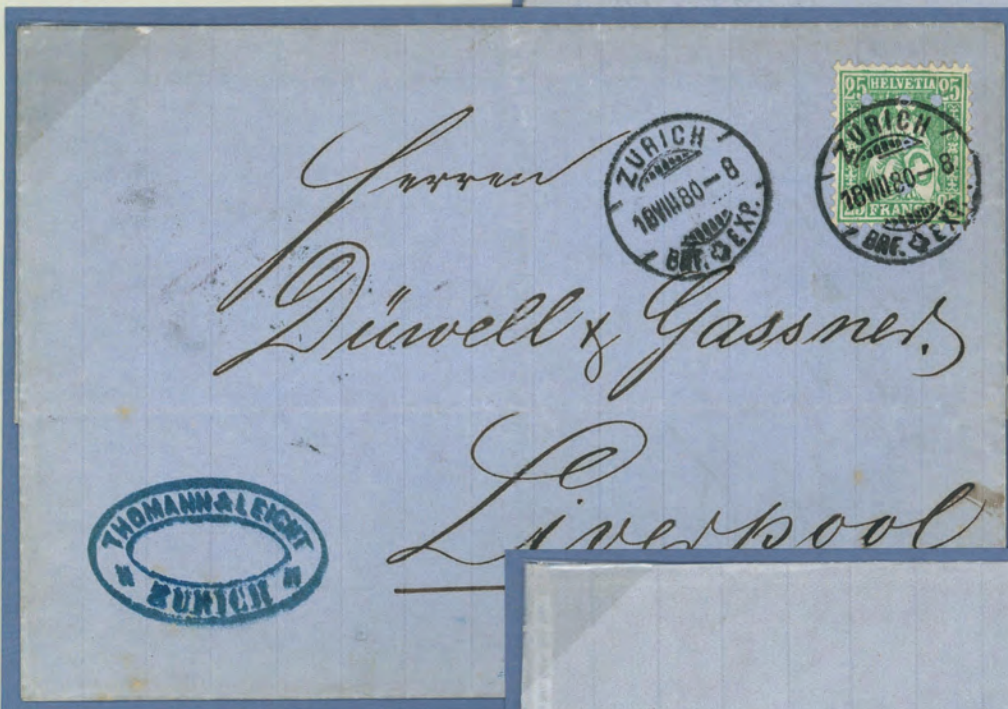 25 HELVETIA 25
ZÜRICH
18 VIII 80 – 8
BRF. EXP.
25 FRANCO
ZÜRICH
18 VIII 80 – 8
BRF. EXP.
Herren
Düwell & Gassner.
Liverpool
THOMANN & LEICHT
ZÜRICH